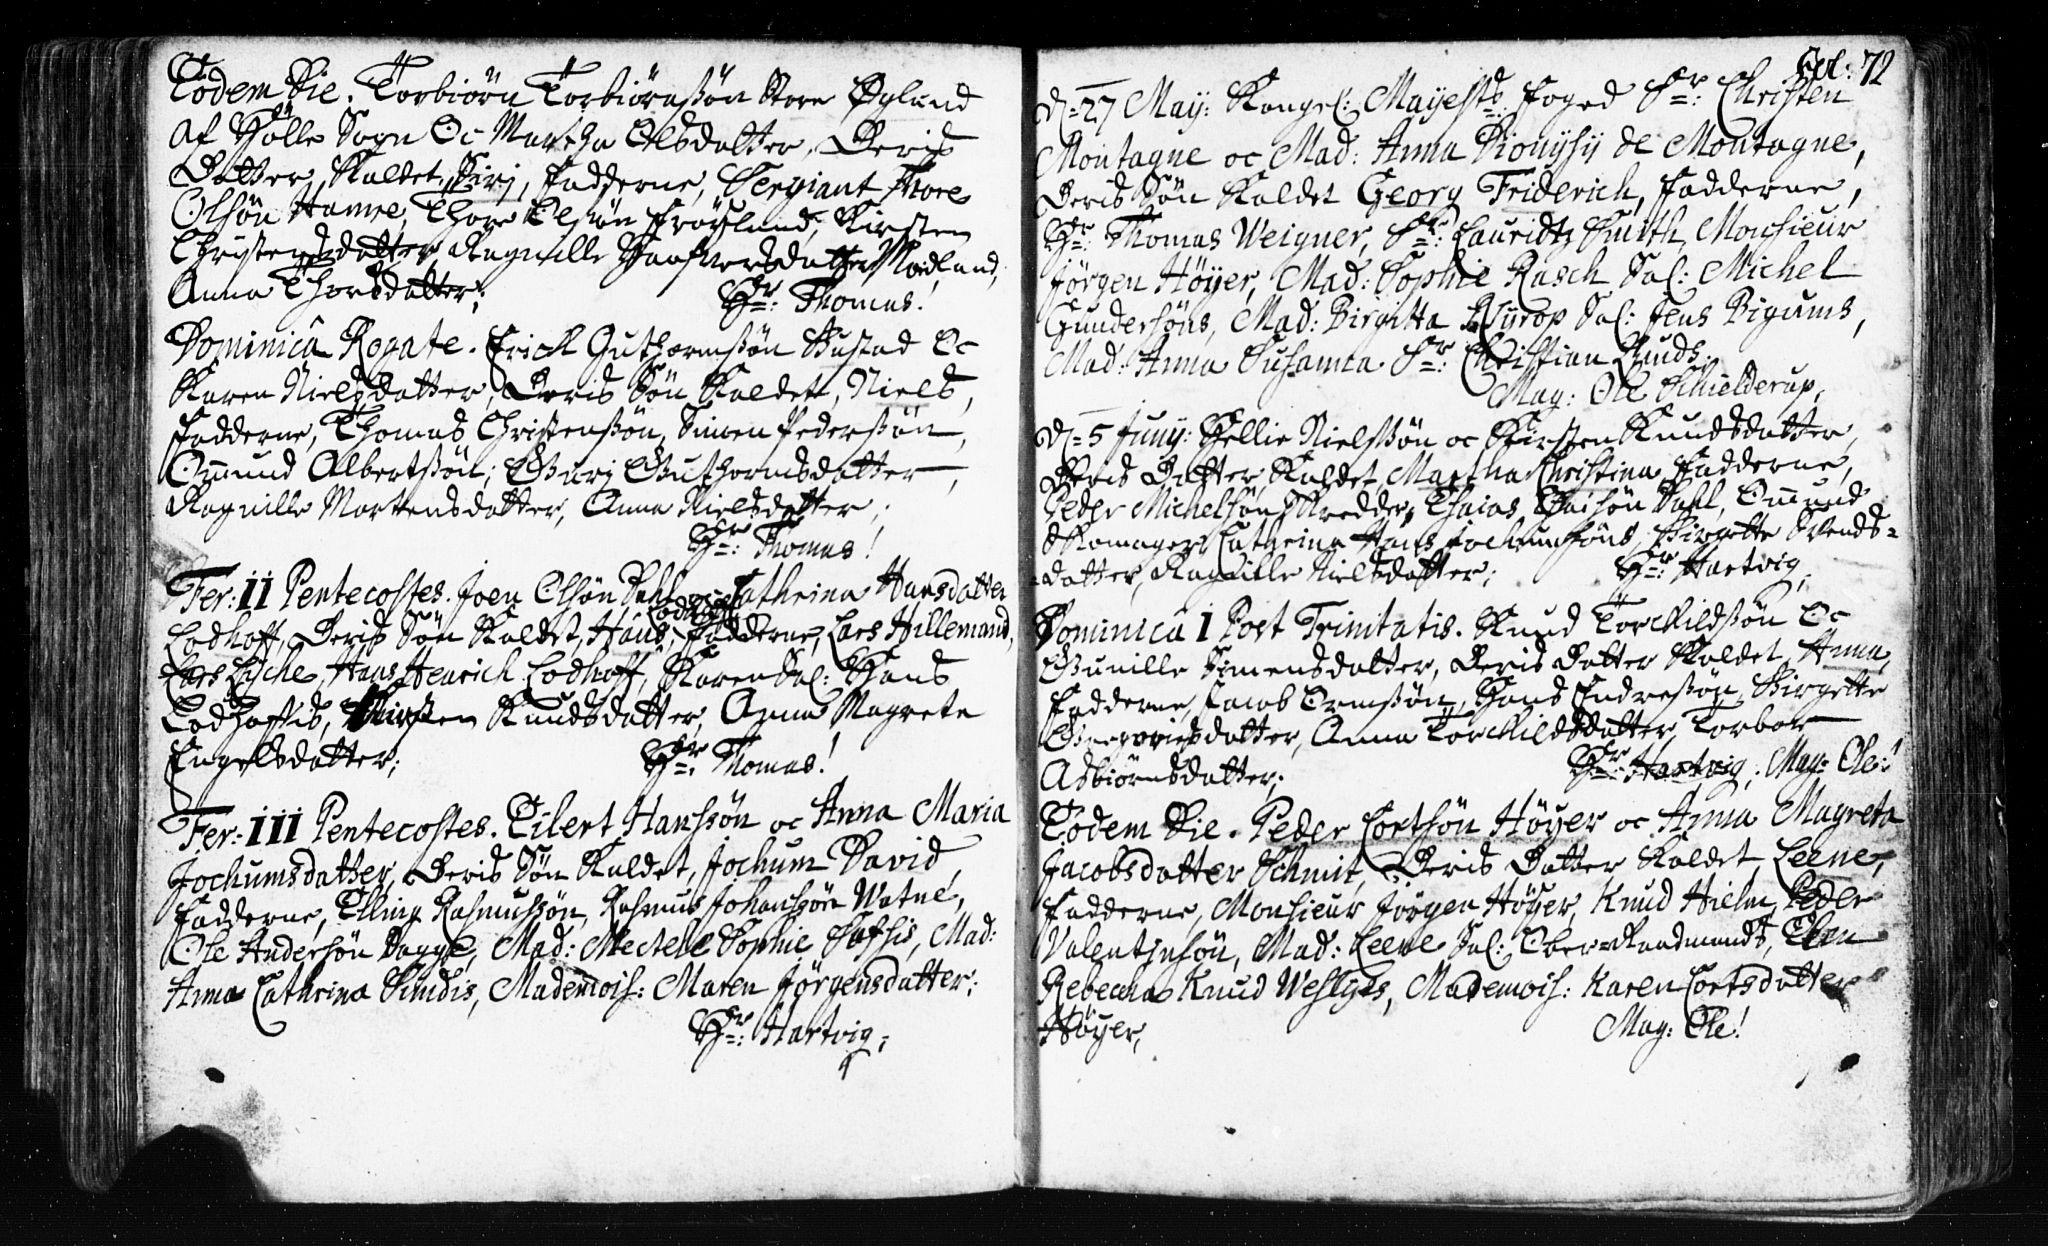 Eodem Die. Torbiörn Torbiörnssön Store Øgland
Af Hölle Sogn Oc Martha Olsdatter, Deris
Datter, Kaldet, Sirj, Fadderne, Sergiant Thore
Olsön Hamre, Thore Olsön Fröyland, Kirsten
Christensdatter, Ragnille Haafversdatter Madland,
Anna Thorsdatter; Hr: Thomas!
Dominica Rogate. Erich Guthormssön Bustad Oc
Karen Nielsdatter, Deris Sön Kaldet, Niels,
Fadderne, Thomas Christenssön, Simen Pederssön,
Omund Albertssön; Gurj Guthormsdatter,
Ragnille Mortensdatter, Anna Nielsdatter;
Hr: Thomas!
Fer: II Pentecostes. Joen Olsön Dahl oc Cathrina Hansdatter
Lodhoff, Deris Sön Kaldet, Hans Lodhoff, Fadderne, Lars Hillemand,
Lars Lyche, Hans Henrich Lodhoff, Karen Sal: Hans
Lodhoffis, Kirsten Knudsdatter, Anna Magreta
Engelsdatter; Hr: Thomas!
Fer: III Pentecostes. Eilert Hanssön oc Anna Maria
Jochumsdatter, Deris Sön Kaldet, Jochum David,
Fadderne, Elling Rasmussön, Rasmus Johanssön Watne,
Ole Andersön Dagge, Mad: Mectele Sophie Saffis, Mad:
Anna Cathrina Smidis, Mademois: Maren Jörgensdatter;
Hr: Hartvig;
Fol: 72
D= 27 May: Kongel: Mayests Foged Sr: Christen
Montagne oc Mad: Anna Dionysij de Montagne,
Deris Sön Kaldet Georg Friderich, Fadderne,
Hr: Thomas Weigner, Sr: Lauridtz Smith, Monsieur
Jörgen Höyer, Mad: Sophie Rasch Sal: Michel
Gundersöns, Mad: Birgitta Nyrop Sal: Jens Bigums,
Mad: Anna Susanna Sr: Christian Ruuds.
Mag: Ole Schielderup,
D= 5 Juny: Hellie Nielssön oc Kirsten Knudsdatter,
Deris Datter, Kaldet, Martha Christina, Fadderne,
Peder Michelsön Skredder, Esaias Esaisön Dahl, Omund
Skomager, Cathrina Hans Jochumsöns, Birgette Svends=
=datter, Ragnille Nielsdatter; Hr: Hartvig,
Dominica I Post Trinitatis. Knud Torchildssön Oc
Gunille Simensdatter, Deris Datter Kaldet, Anna,
Fadderne, Jacob Ormssön, Hans Endressön, Birgette
Gregoriisdatter, Anna Torchildsdatter, Torbor
Asbiörnsdatter; Hr: Hartvig, Mag: Ole!
Eodem Die. Peder Cortsön Höyer oc Anna Magreta
Jacobsdatter Schmit, Deris Datter Kaldet, Leene,
Fadderne, Monsieur Jörgen Höyer, Knud Hielm, Peder
Valentinsön, Mad: Leene Sal: Ober=Raadmands, Elen
Rebecha Knud Weslyes, Mademois: Karen Cortsdatter
Höyer, Mag: Ole!